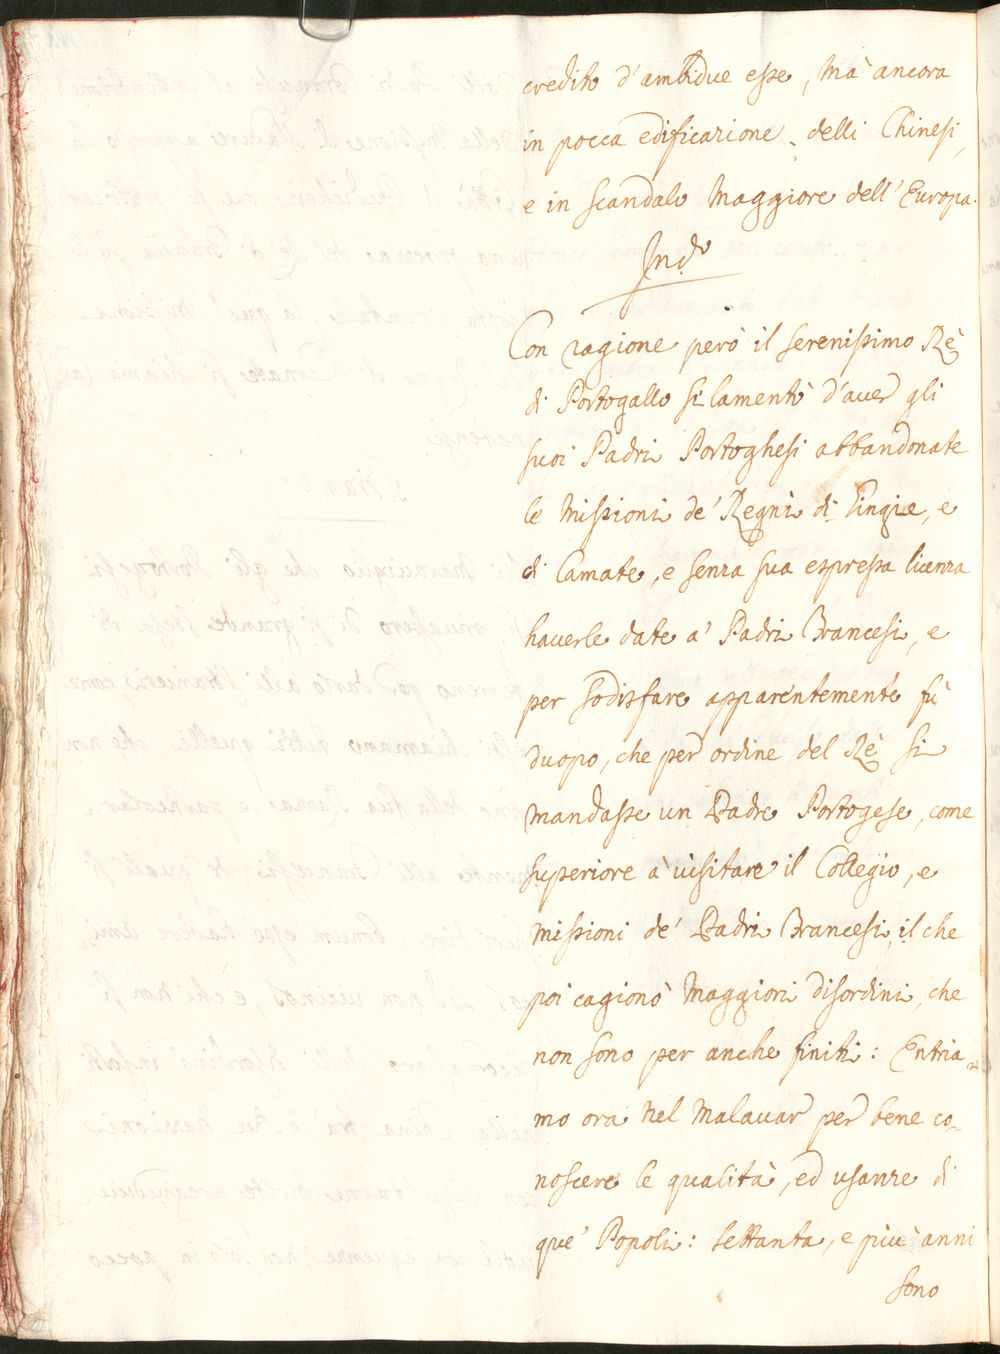 credito d'ambidue esse, mà ancora
in pocca edificazione delli Chinesi,
e in scandalo maggiore dell'Europa.
Ind.º
Con ragione però il serenissimo Rè
di Portogallo si lamentò d'aver gli
suoi Padri Portoghesi abbandonate
le Missioni de' Regni di Gingie, e
di Carnate, e senza sua espressa licenza
haverle date a' Padri Francesi, e
per sodisfare apparentemente fù
duopo, che per ordine del Rè si
mandasse un Padre Portogese, come
superiore a' visitare il Collegio, e
missioni de' Padri Francesi, il che
poi cagionò maggiori disordini, che
non sono per anche finiti: Entria-
mo ora nel Malavar per bene co-
noscere le qualità, ed usanze di
que' Popoli: settanta, e più anni
sono